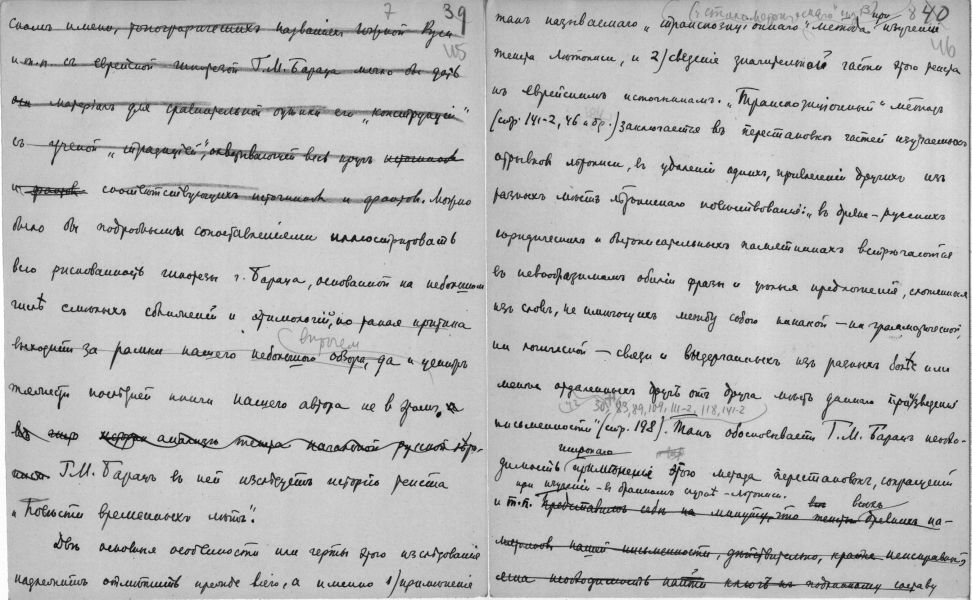 7 39
скомъ имени, топографическихъ названіяхъ Южной Руси
и т.п. съ еврейской гипотезой Г.М. Бараца могло бы дать
матеріалъ для сравнительной оцѣнки его „конструкцій“
съ ученой „традиціей“, охватывающей весь кругъ источниковъ
и фактовъ соотвѣтствующихъ источниковъ и фактовъ. Можно
было бы подробными сопоставленіями иллюстрировать
всю рискованность гипотезы г. Бараца, основанной на небольшомъ
числѣ смѣлыхъ сближеній и этимологій, но такая критика
впрочемъ
выходитъ за рамки нашего небольшого обзора, да и центръ
тяжести послѣдней книги нашего автора не въ этомъ.
анализъ текста начальной русской лѣто-
Г.М. Барацъ въ ней изслѣдуетъ исторію текста
„Повѣсти временныхъ лѣтъ“.
Двѣ основныя особенности или черты этого изслѣдованія
надлежитъ отмѣтить прежде всего, а именно 1) примѣненіе
8 40
такъ называемаго „транспозиціоннаго“ метода при изученіи
текста лѣтописи, и 2) сведеніе значительной части этого текста
къ еврейскимъ источникамъ. „Транспозиціонный“ методъ
(стр. 141-2, 46 и др.) заключается въ перестановкѣ частей изучаемыхъ
отрывковъ лѣтописи, въ удаленіи однихъ, привлеченіи другихъ изъ
разныхъ мѣстъ лѣтописнаго повѣствованія: „въ древне-русскихъ
юридическихъ и бытописательныхъ памятникахъ встрѣчаются
въ невообразимомъ обиліи фразы и цѣлыя предложенія, сложенныя
изъ словъ, не имѣющихъ между собою никакой — ни грамматической,
ни логической — связи и выдерганныхъ изъ разныхъ болѣе или
менѣе отдаленныхъ другъ отъ друга мѣстъ даннаго произведенія
83, 89, 109, 111-2, 118, 141-2
письменности“ (стр. 198). Такъ обосновываетъ Г.М. Барацъ необхо-
широкаго
димость примѣненія этого метода перестановокъ, сокращеній
при изученіи - въ данномъ случаѣ - лѣтописи.
и т.п. Представимъ себѣ на минуту, что текстъ всѣхъ древнихъ па-
мятниковъ нашей письменности, дѣйствительно, крайне неисправенъ,
ясна необходимость найти ключъ къ подлинному составу